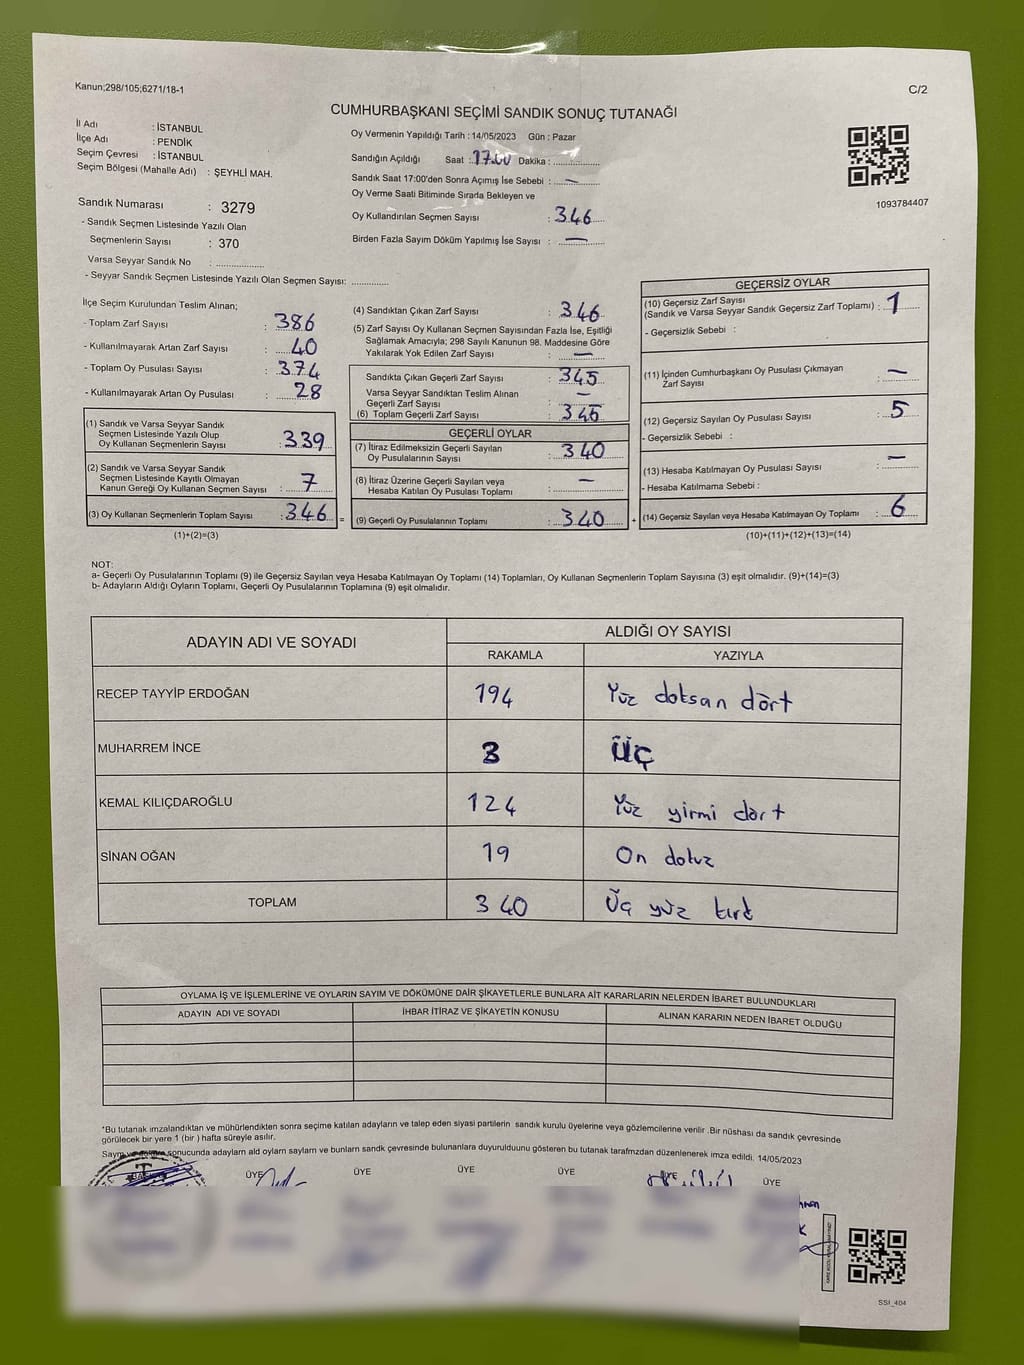 Kanun;298/105;6271/18-1
C/2
CUMHURBAŞKANI SEÇİMİ SANDIK SONUÇ TUTANAĞI
İl Adı : İSTANBUL
İlçe Adı : PENDİK
Seçim Çevresi : İSTANBUL
Seçim Bölgesi (Mahalle Adı) : ŞEYHLİ MAH.
Sandık Numarası : 3279
- Sandık Seçmen Listesinde Yazılı Olan
Seçmenlerin Sayısı : 370
Varsa Seyyar Sandık No : ..................
- Seyyar Sandık Seçmen Listesinde Yazılı Olan Seçmen Sayısı: ..............
Oy Vermenin Yapıldığı Tarih : 14/05/2023 Gün : Pazar
Sandığın Açıldığı Saat : 17.00 Dakika : ..............
Sandık Saat 17:00'den Sonra Açımış İse Sebebi : —
Oy Verme Saati Bitiminde Sırada Bekleyen ve
Oy Kullandırılan Seçmen Sayısı : 346
Birden Fazla Sayım Döküm Yapılmış İse Sayısı : —
1093784407
İlçe Seçim Kurulundan Teslim Alınan;
- Toplam Zarf Sayısı : 386
- Kullanılmayarak Artan Zarf Sayısı : 40
- Toplam Oy Pusulası Sayısı : 374
- Kullanılmayarak Artan Oy Pusulası : 28
(1) Sandık ve Varsa Seyyar Sandık
Seçmen Listesinde Yazılı Olup
Oy Kullanan Seçmenlerin Sayısı : 339
(2) Sandık ve Varsa Seyyar Sandık
Seçmen Listesinde Kayıtlı Olmayan
Kanun Gereği Oy Kullanan Seçmen Sayısı : 7
(3) Oy Kullanan Seçmenlerin Toplam Sayısı : 346 =
(1)+(2)=(3)
(4) Sandıktan Çıkan Zarf Sayısı : 346
(5) Zarf Sayısı Oy Kullanan Seçmen Sayısından Fazla İse, Eşitliği
Sağlamak Amacıyla; 298 Sayılı Kanunun 98. Maddesine Göre
Yakılarak Yok Edilen Zarf Sayısı : —
Sandıkta Çıkan Geçerli Zarf Sayısı : 345
Varsa Seyyar Sandıktan Teslim Alınan
Geçerli Zarf Sayısı : —
(6) Toplam Geçerli Zarf Sayısı : 345
GEÇERLİ OYLAR
(7) İtiraz Edilmeksizin Geçerli Sayılan
Oy Pusulalarının Sayısı : 340
(8) İtiraz Üzerine Geçerli Sayılan veya
Hesaba Katılan Oy Pusulası Toplamı : —
(9) Geçerli Oy Pusulalarının Toplamı : 340 +
GEÇERSİZ OYLAR
(10) Geçersiz Zarf Sayısı
(Sandık ve Varsa Seyyar Sandık Geçersiz Zarf Toplamı) : 1
- Geçersizlik Sebebi :
(11) İçinden Cumhurbaşkanı Oy Pusulası Çıkmayan
Zarf Sayısı : —
(12) Geçersiz Sayılan Oy Pusulası Sayısı : 5
- Geçersizlik Sebebi :
(13) Hesaba Katılmayan Oy Pusulası Sayısı : —
- Hesaba Katılmama Sebebi :
(14) Geçersiz Sayılan veya Hesaba Katılmayan Oy Toplamı : 6
(10)+(11)+(12)+(13)=(14)
NOT:
a- Geçerli Oy Pusulalarının Toplamı (9) ile Geçersiz Sayılan veya Hesaba Katılmayan Oy Toplamı (14) Toplamları, Oy Kullanan Seçmenlerin Toplam Sayısına (3) eşit olmalıdır. (9)+(14)=(3)
b- Adayların Aldığı Oyların Toplamı, Geçerli Oy Pusulalarının Toplamına (9) eşit olmalıdır.
ADAYIN ADI VE SOYADI ALDIĞI OY SAYISI
RAKAMLA YAZIYLA
RECEP TAYYİP ERDOĞAN 194 Yüz doksan dört
MUHARREM İNCE 3 ÜÇ
KEMAL KILIÇDAROĞLU 124 Yüz yirmi dört
SİNAN OĞAN 19 On dokuz
TOPLAM 340 Üç yüz kırk
OYLAMA İŞ VE İŞLEMLERİNE VE OYLARIN SAYIM VE DÖKÜMÜNE DAİR ŞİKAYETLERLE BUNLARA AİT KARARLARIN NELERDEN İBARET BULUNDUKLARI
ADAYIN ADI VE SOYADI İHBAR İTİRAZ VE ŞİKAYETİN KONUSU ALINAN KARARIN NEDEN İBARET OLDUĞU
*Bu tutanak imzalandıktan ve mühürlendikten sonra seçime katılan adayların ve talep eden siyasi partilerin sandık kurulu üyelerine veya gözlemcilerine verilir .Bir nüshası da sandık çevresinde
görülecek bir yere 1 (bir ) hafta süreyle asılır.
sonucunda adayların ald oyların sayların ve bunların sandk çevresinde bulunanlara duyurulduunu gösteren bu tutanak tarafmzdan düzenlenerek imza edildi. 14/05/2023
ÜYE ÜYE ÜYE ÜYE ÜYE ÜYE
SSI_404